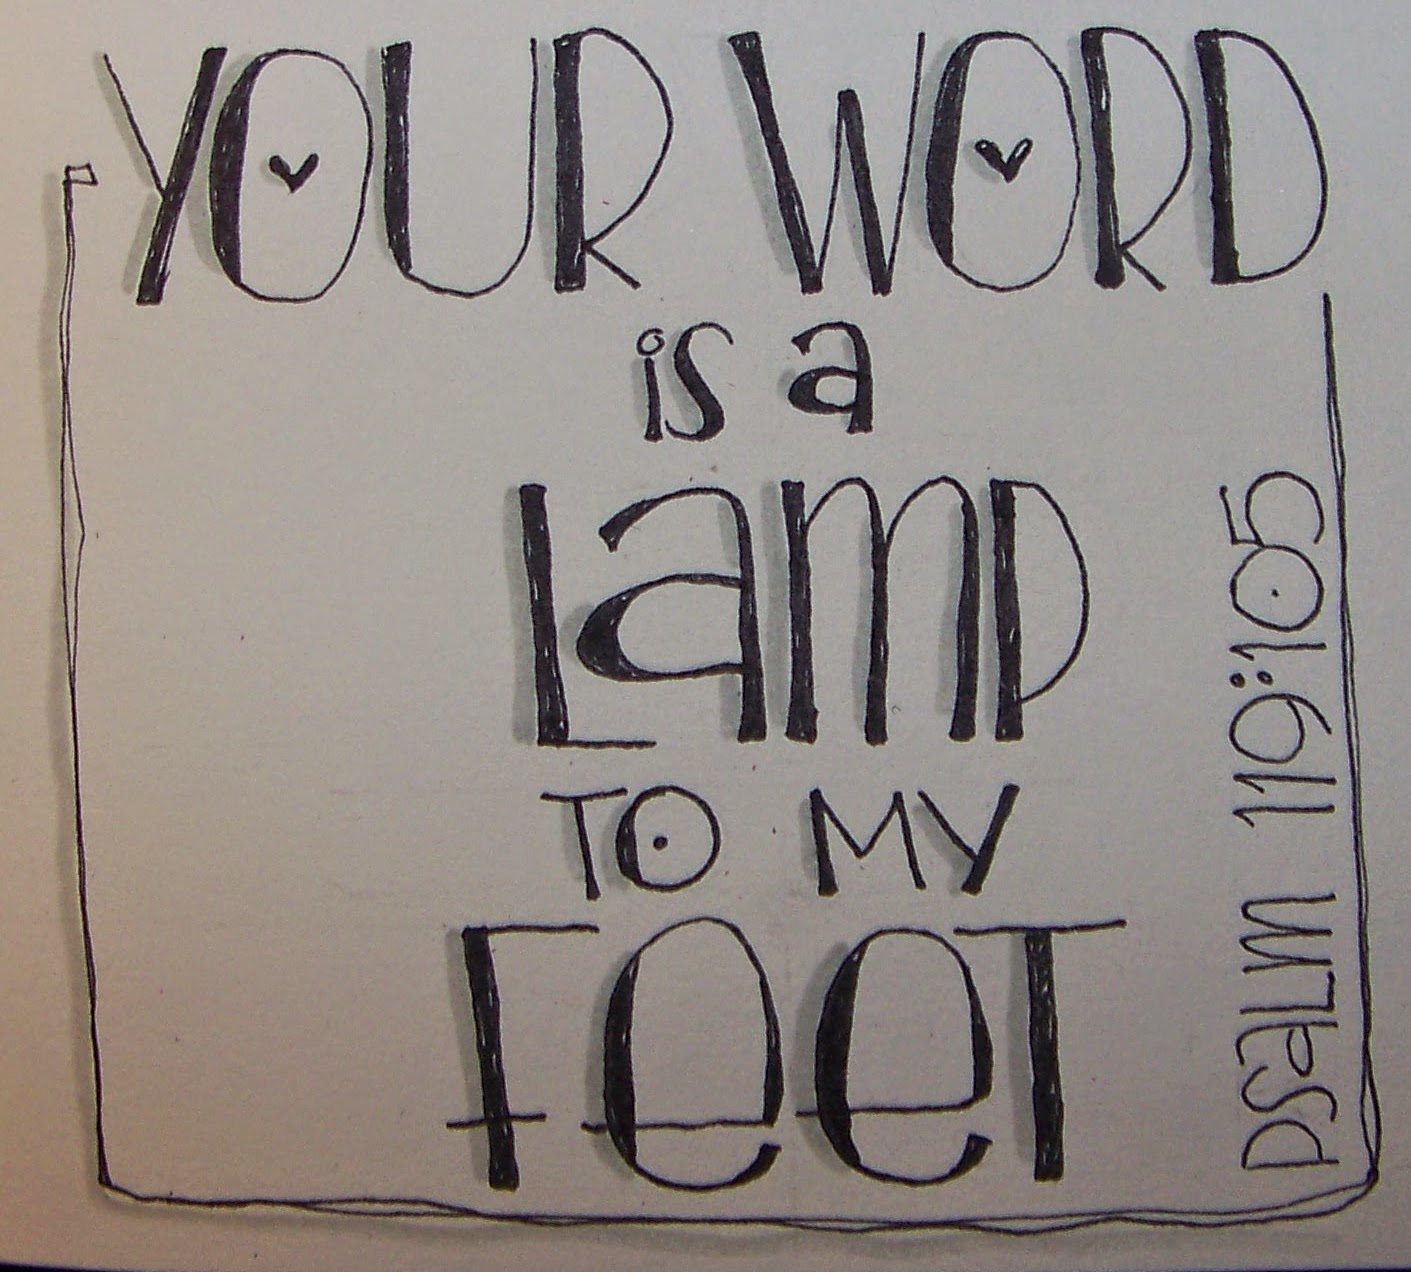 YOUR WORD
is a
Lamp
TO MY
FeeT
psalm 119:105